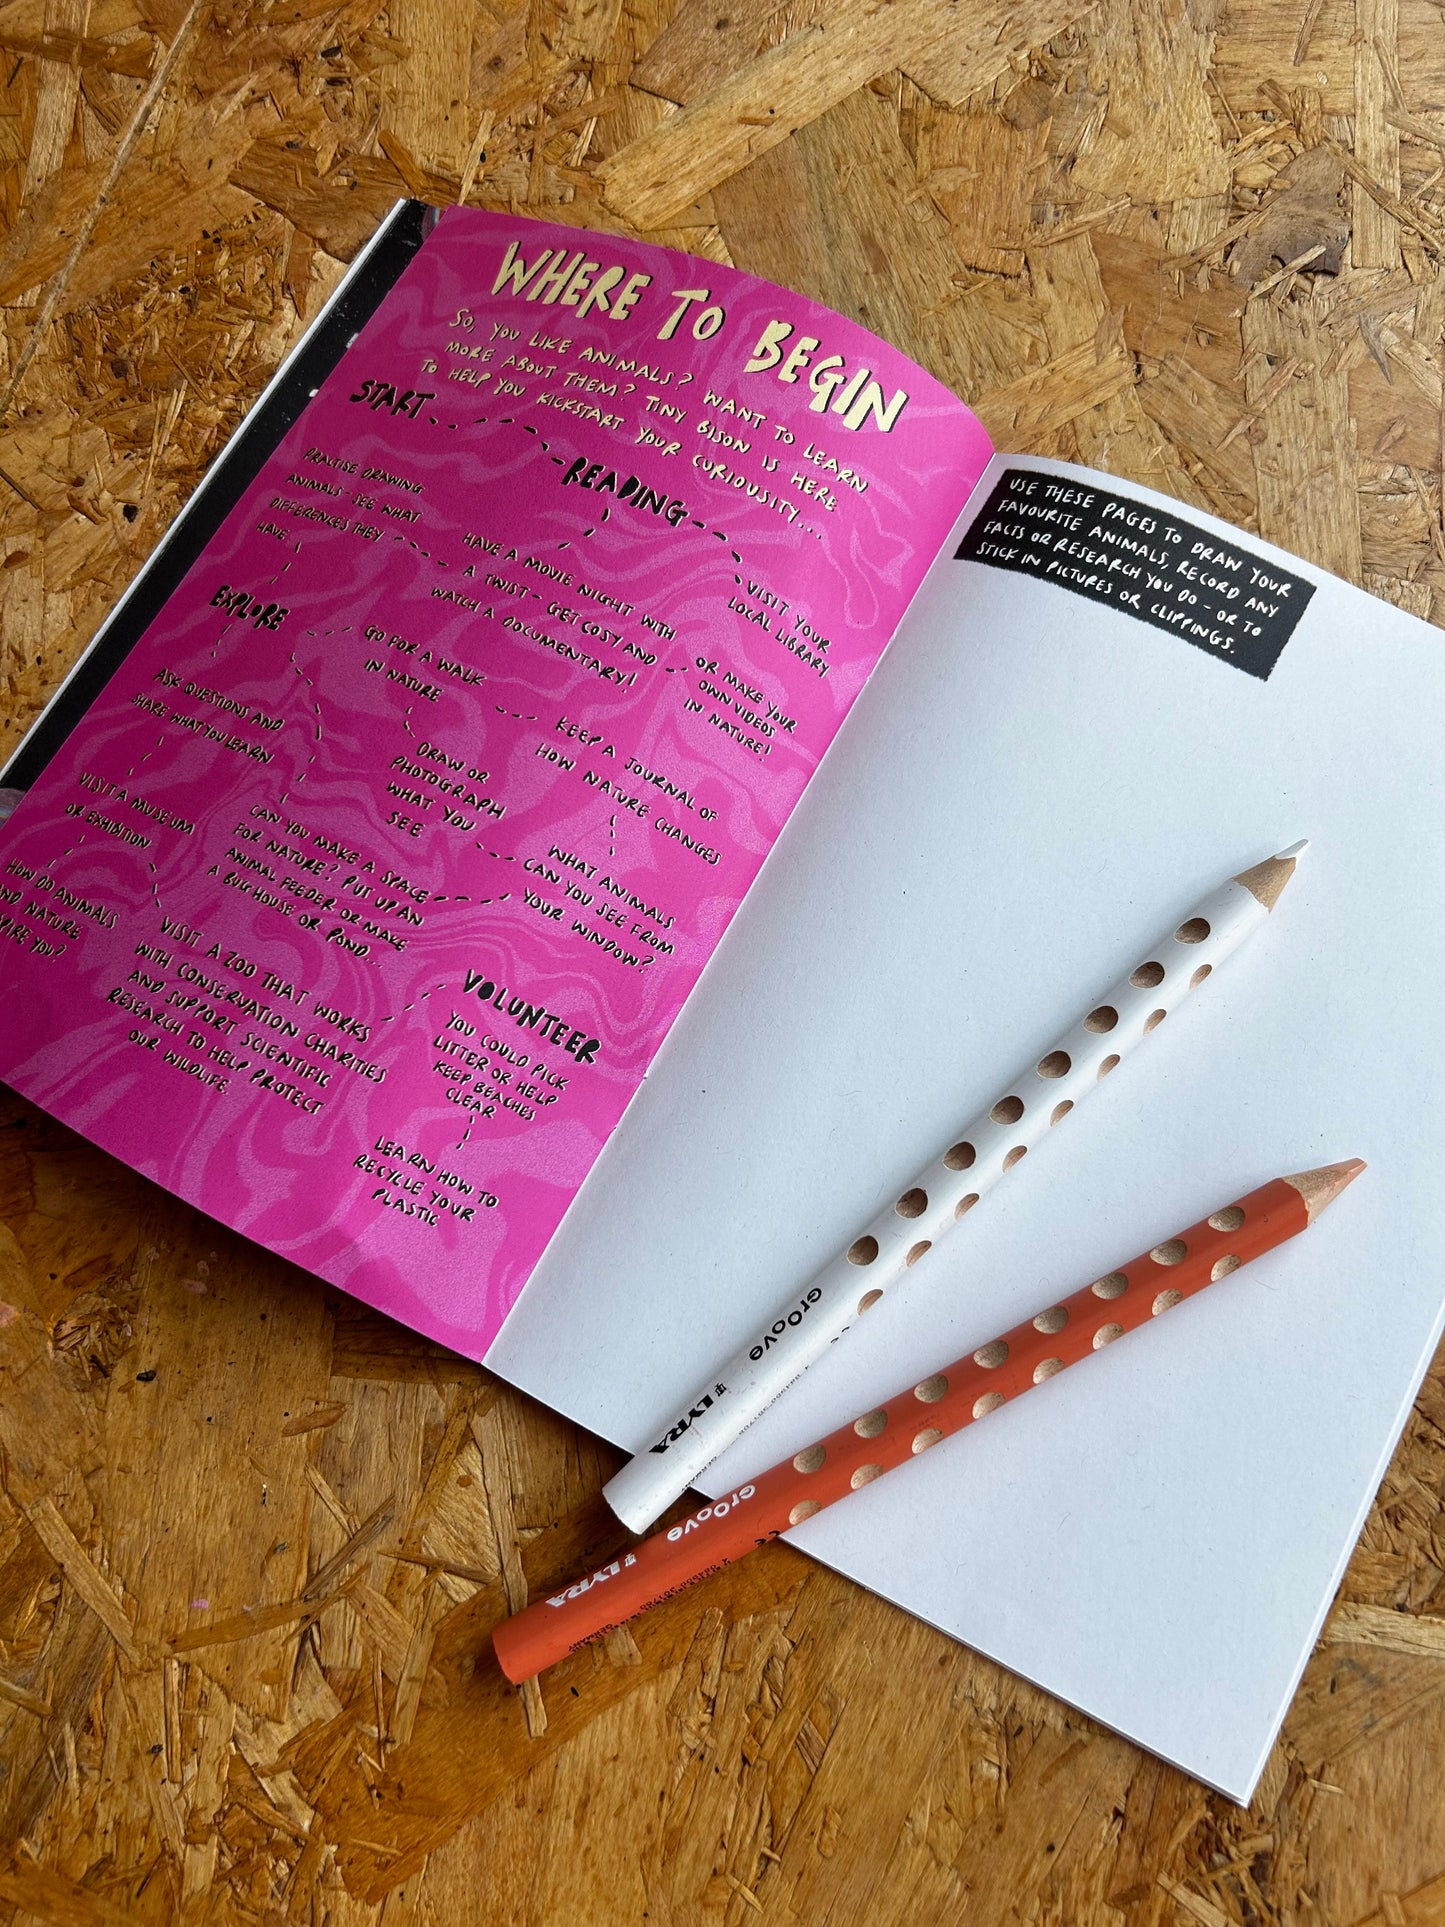 WHERE TO BEGIN
SO, YOU LIKE ANIMALS? WANT TO LEARN
MORE ABOUT THEM? TINY BISON IS HERE
TO HELP YOU KICKSTART YOUR CURIOUSITY...
START
READING
PRACTISE DRAWING
ANIMALS - SEE WHAT
DIFFERENCES THEY
HAVE
HAVE A MOVIE NIGHT WITH
A TWIST - GET COSY AND
WATCH A DOCUMENTARY!
VISIT YOUR
LOCAL LIBRARY
OR MAKE YOUR
OWN VIDEOS
IN NATURE!
EXPLORE
GO FOR A WALK
IN NATURE
KEEP A JOURNAL OF
HOW NATURE CHANGES
ASK QUESTIONS AND
SHARE WHAT YOU LEARN
DRAW OR
PHOTOGRAPH
WHAT YOU
SEE
VISIT A MUSEUM
OR EXHIBITION
CAN YOU MAKE A SPACE
FOR NATURE? PUT UP AN
ANIMAL FEEDER OR MAKE
A BUG HOUSE OR POND...
WHAT ANIMALS
CAN YOU SEE FROM
YOUR WINDOW?
HOW DO ANIMALS
AND NATURE
SPIRE YOU?
VISIT A ZOO THAT WORKS
WITH CONSERVATION CHARITIES
AND SUPPORT SCIENTIFIC
RESEARCH TO HELP PROTECT
OUR WILDLIFE.
VOLUNTEER
YOU COULD PICK
LITTER OR HELP
KEEP BEACHES
CLEAR
LEARN HOW TO
RECYCLE YOUR
PLASTIC
USE THESE PAGES TO DRAW YOUR
FAVOURITE ANIMALS, RECORD ANY
FACTS OR RESEARCH YOU DO - OR TO
STICK IN PICTURES OR CLIPPINGS.
LYRA groove
LYRA groove